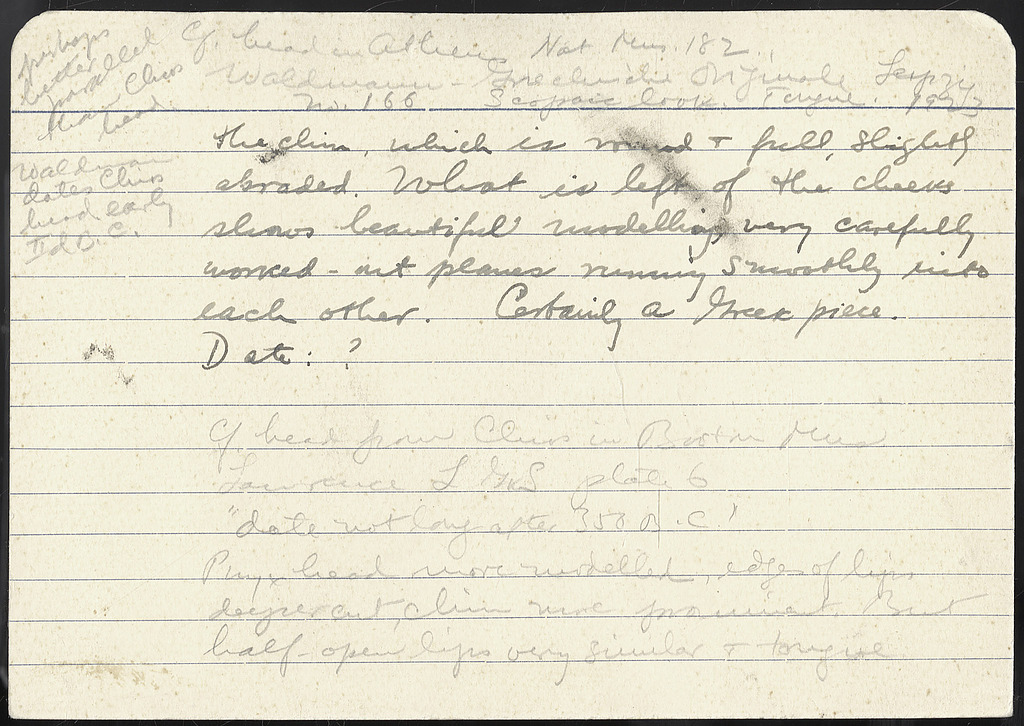 perhaps
better
parallel
than Chios
head.
Cf. head in Athens Nat Mus. 182.
Waldmann - Griechische Originale Leipzig
No. 166 Scopaic look. Tongue. 1923
Waldmann
dates Chios
head early
IIId B.C.
the chin, which is round + full, slightly
abraded. What is left of the cheeks
shows beautiful modelling, very carefully
worked-out planes running smoothly into
each other. Certainly a Greek piece.
Date: ?
Cf head from Chios in Boston Mus
Lawrence L GKS plate 6
"date not long after 350 B.C."
Pnyx head more modelled, edges of lips
deeper cut, chin more prominent. But
half-open lips very similar + tongue